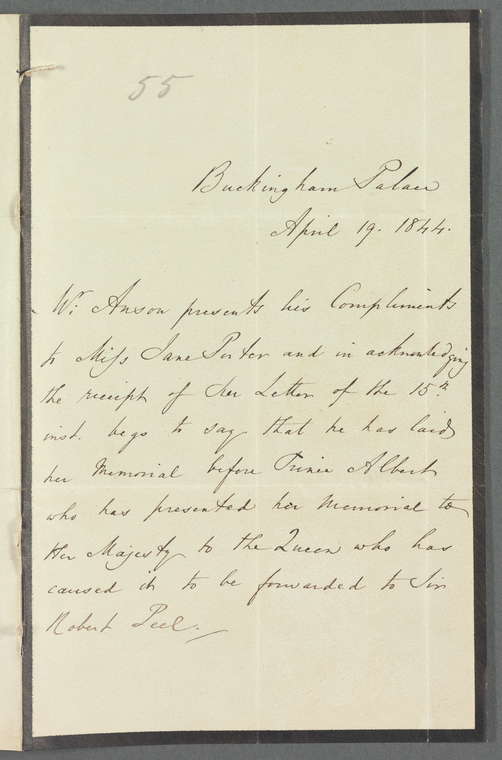 55
Buckingham Palace
April 19. 1844.
Mr. Anson presents his Compliments
to Miss Jane Porter and in acknowledging
the receipt of her Letter of the 15th
inst. begs to say that he has laid
her Memorial before Prince Albert
who has presented her Memorial to
Her Majesty to the Queen who has
caused it to be forwarded to Sir
Robert Peel.